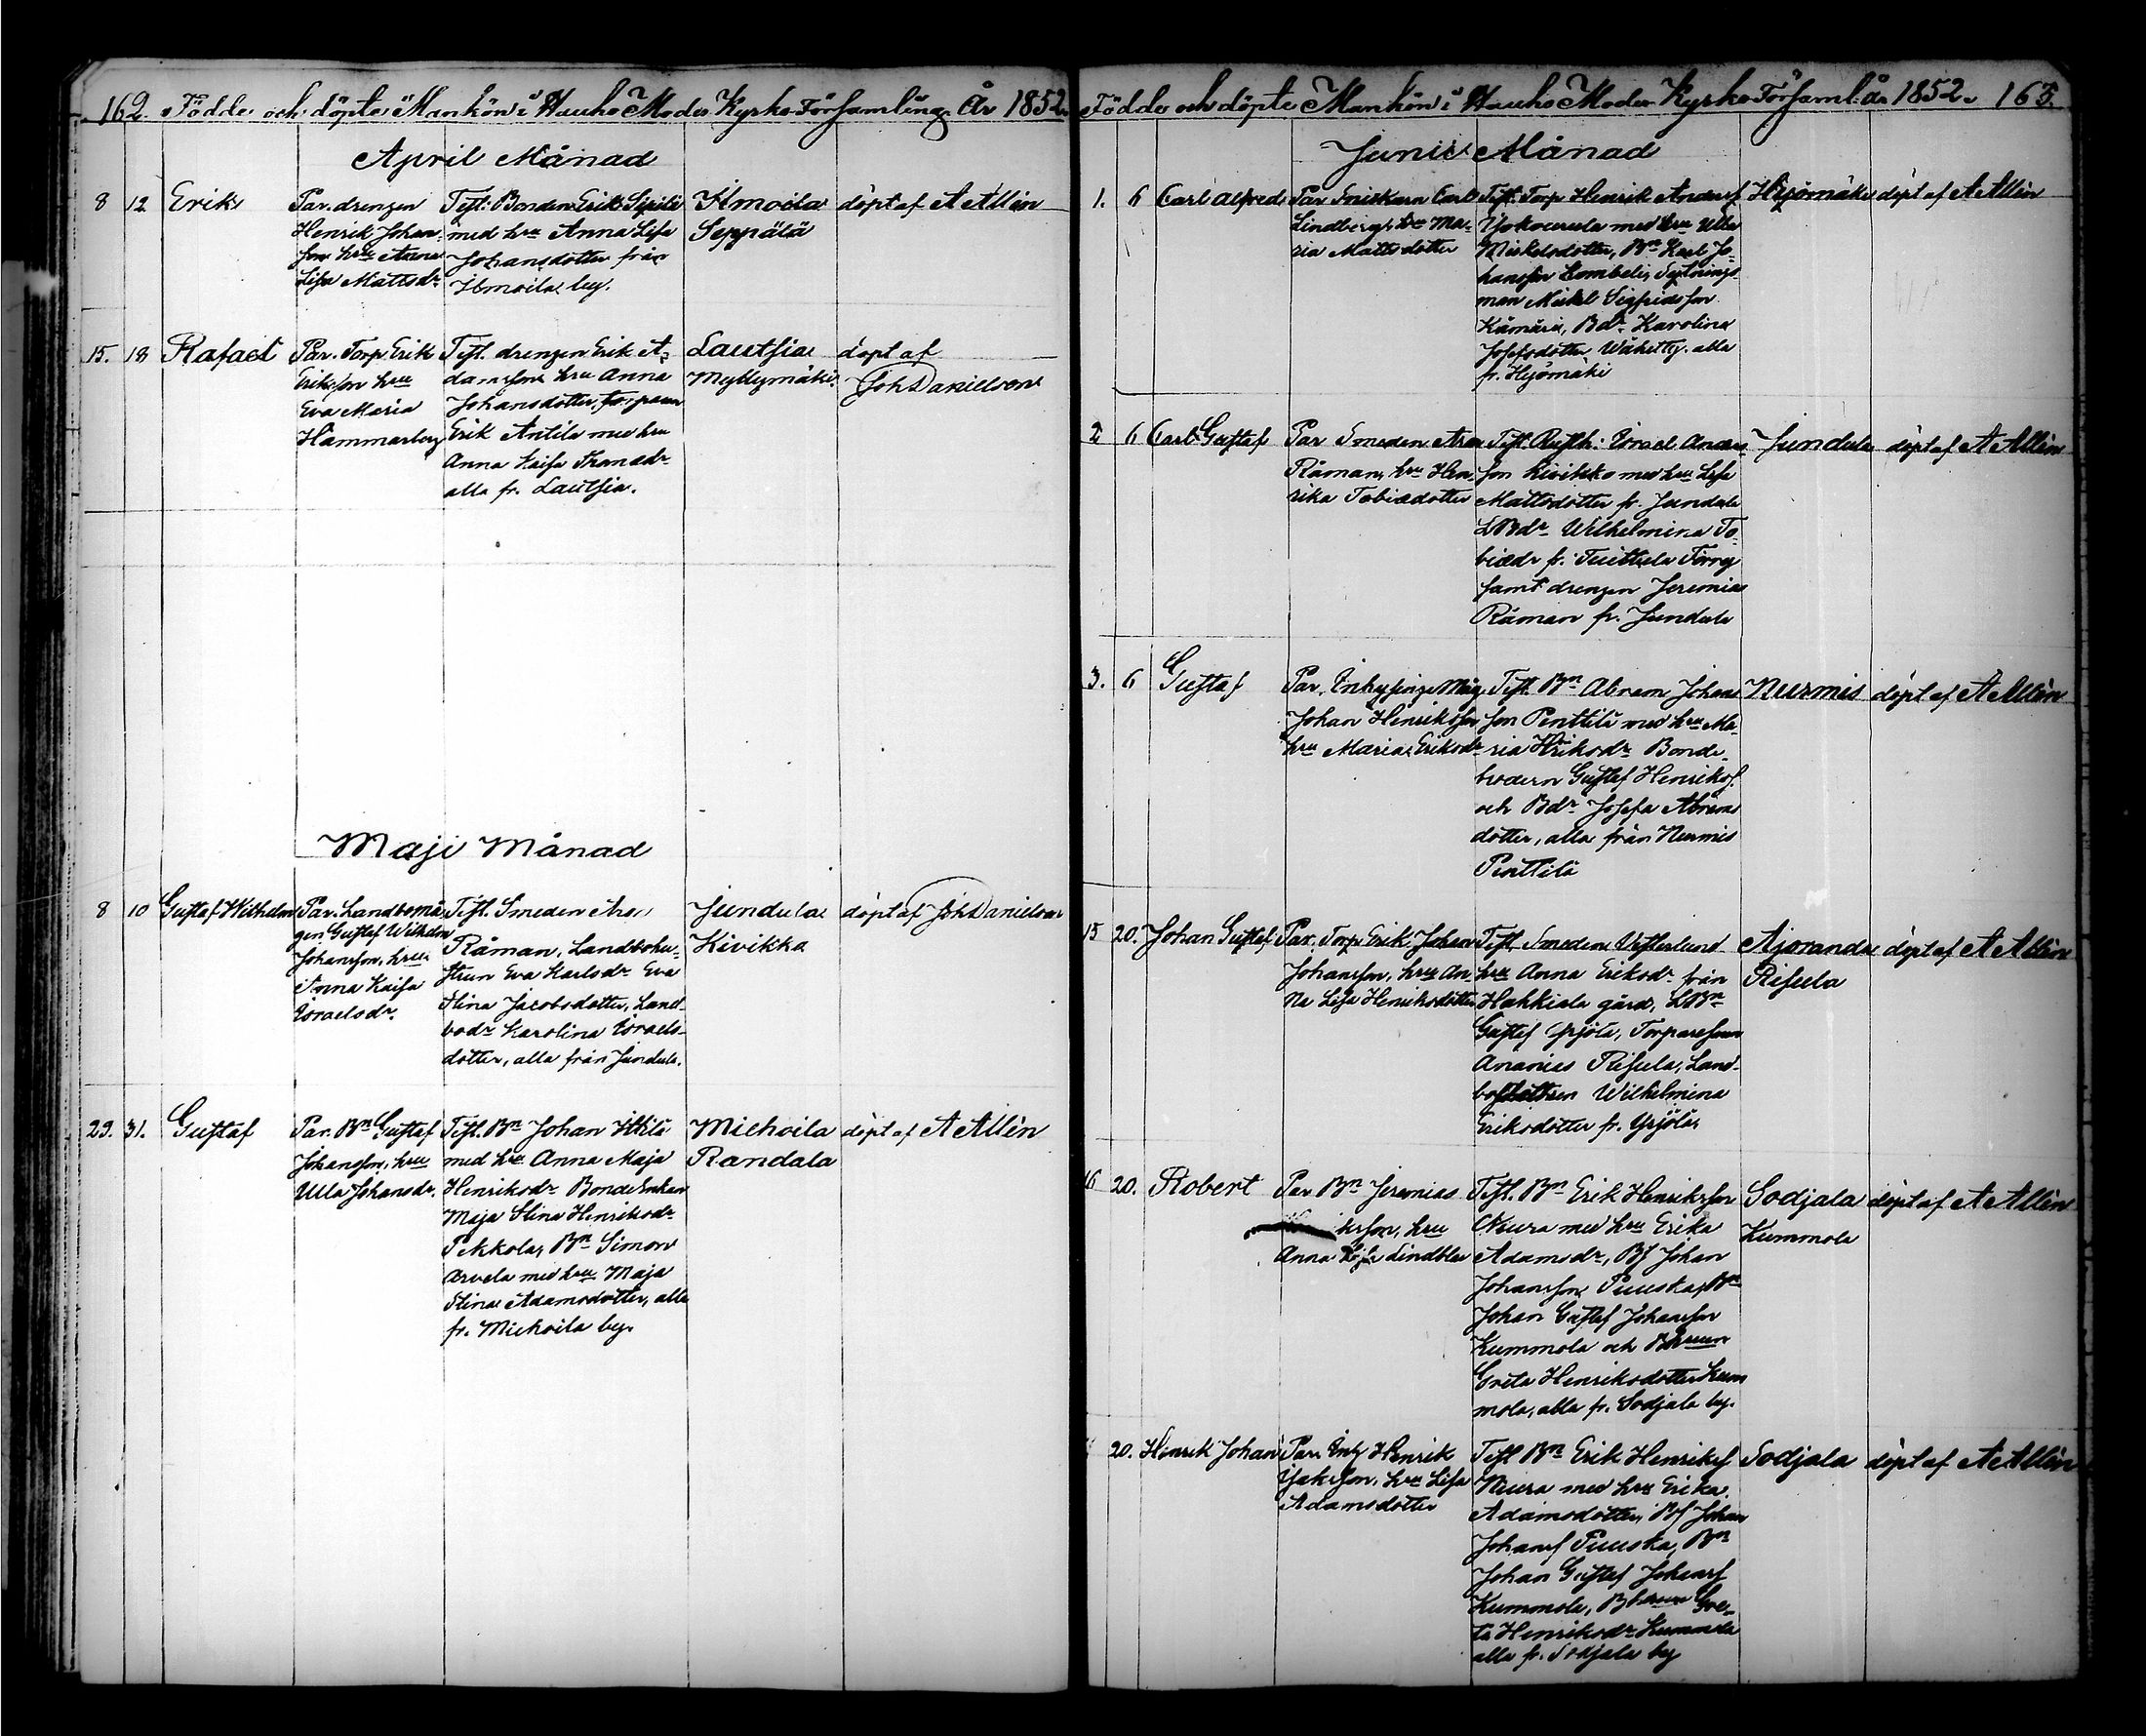 162. Födde och döpte Mankön i Hauho Moder Kyrko Församling År 1852.
April Månad
8 12 Erik
Par. drengen
Henrik Johan-
son hru Anna
Lisa Mattsdr
Test: Bonden Erik Sipilä
med hru Anna Lisa
Johansdotter från
Ilmoila by.
Ilmoila
Seppälä
döpt af A Allén
15. 18 Rafael
Par. Torp. Erik
Erikson hru
Eva Maria
Hammarberg
Test. drengen Erik A-
damsson hru Anna
Johansdotter, torparen
Erik Antila med hru
Anna Kaisa Fransdr
alla fr. Lautsia.
Lautsia
Myllymäki
döpt af
Joh Danielson
Maji Månad
8 10 Gustaf Wilhelm
Par. Landbomå-
gen Gustaf Wilhelm
Johansson, hru
Anna Kaisa
Israelsdr.
Test. Smeden
Råman, Landbohu-
strun Eva Karlsdr Eva
Stina Jacobsdotter, Land-
bodr Karolina Israels-
dotter, alla från Jundula.
Jundula
Kivikka
döpt af Joh Danielson
29. 31. Gustaf
Par. Bn Gustaf
Johansson, hru
Ulla Johansdr.
Test. Bn Johan Uttila
med hru Anna Maja
Henriksdr Bonde Enkan
Maja Stina Henriksdr
Pekkola, Bn Simon
Arvela med hru Maja
Stina Adamsdotter, alla
fr. Miehoila by.
Miehoila
Randala
döpt af A Allén
Födde och döpte Mankön i Hauho Moder Kyrko Församl: år 1852. 163.
Junii Månad
1. 6 Carl Alfred
Par Carl
Lindberg, hru Ma-
ria Mattsdotter
Test. Torp Henrik Andersf
med hru Ulla
Mickelsdotter, Bn Karl Jo-
hansson
man Mickel Sigfridsson
Kämäri, Bdr Karolina
Josefsdotter alla
fr. Hyömäki
Hyömäki
döpt af A Allén
2 6 Carl Gustaf
Par Smeden
Råman, hru Hen-
rika Tobiedotter
Test. Rusth: Israel Anders-
son Kivikko med hru Lisa
Mattsdotter fr. Jundula
LBdr Wilhelmina To-
biedr fr. Tuittula
samt drengen Jeremias
Råman fr. Jundula
Jundula
döpt af A Allén
3. 6 Gustaf
Par. Inhysinge Måg
Johan Henriksson
hru Maria Eriksdr
Test. Bn Abram Johans
son Penttilä med hru Ma-
ria Eriksdr Bonde
brodern Gustaf Henriksf.
och Bdr Josefa Abrams
dotter, alla från Nurmis
Penttilä
Nurmis
döpt af A Allén
15 20. Johan Gustaf
Par. Torp. Erik Johan
Johansson, hru An-
na Lisa Henriksdotter
Test. Smeden Vesterlund
hru Anna Eriksdr från
Hahkiala gård, LBn
Gustaf Yrjölä, Torparesonen
Ananias Risula, Land-
Wilhelmina
Eriksdotter fr. Yrjölä
Ajoranda
Risula
döpt af A Allén
16 20. Robert
Par Bn Jeremias
iksson, hru
Anna Lisa Lindblad
Test. Bn Erik Henriksson
Niura med hru Erika
Adamsdr, Bf Johan
Johansson Puuska, Bn
Johan Gustaf Johansson
Kummola och Bhrun
Greta Henriksdotter Kum
mola, alla fr. Sodjala by.
Sodjala
Kummola
döpt af A Allén
20. Henrik Johan
Par. Inh Henrik
Isaksson, hru Lisa
Adamsdotter
Test Bn Erik Henriksf
Niura med hru Erika
Adamsdotter, Bf Johan
Johansf Puuska, Bn
Johan Gustaf Johansf
Kummola, Bhrun Gre-
ta Henriksdr Kummola
alla fr. Sodjala by
Sodjala
döpt af A Allén